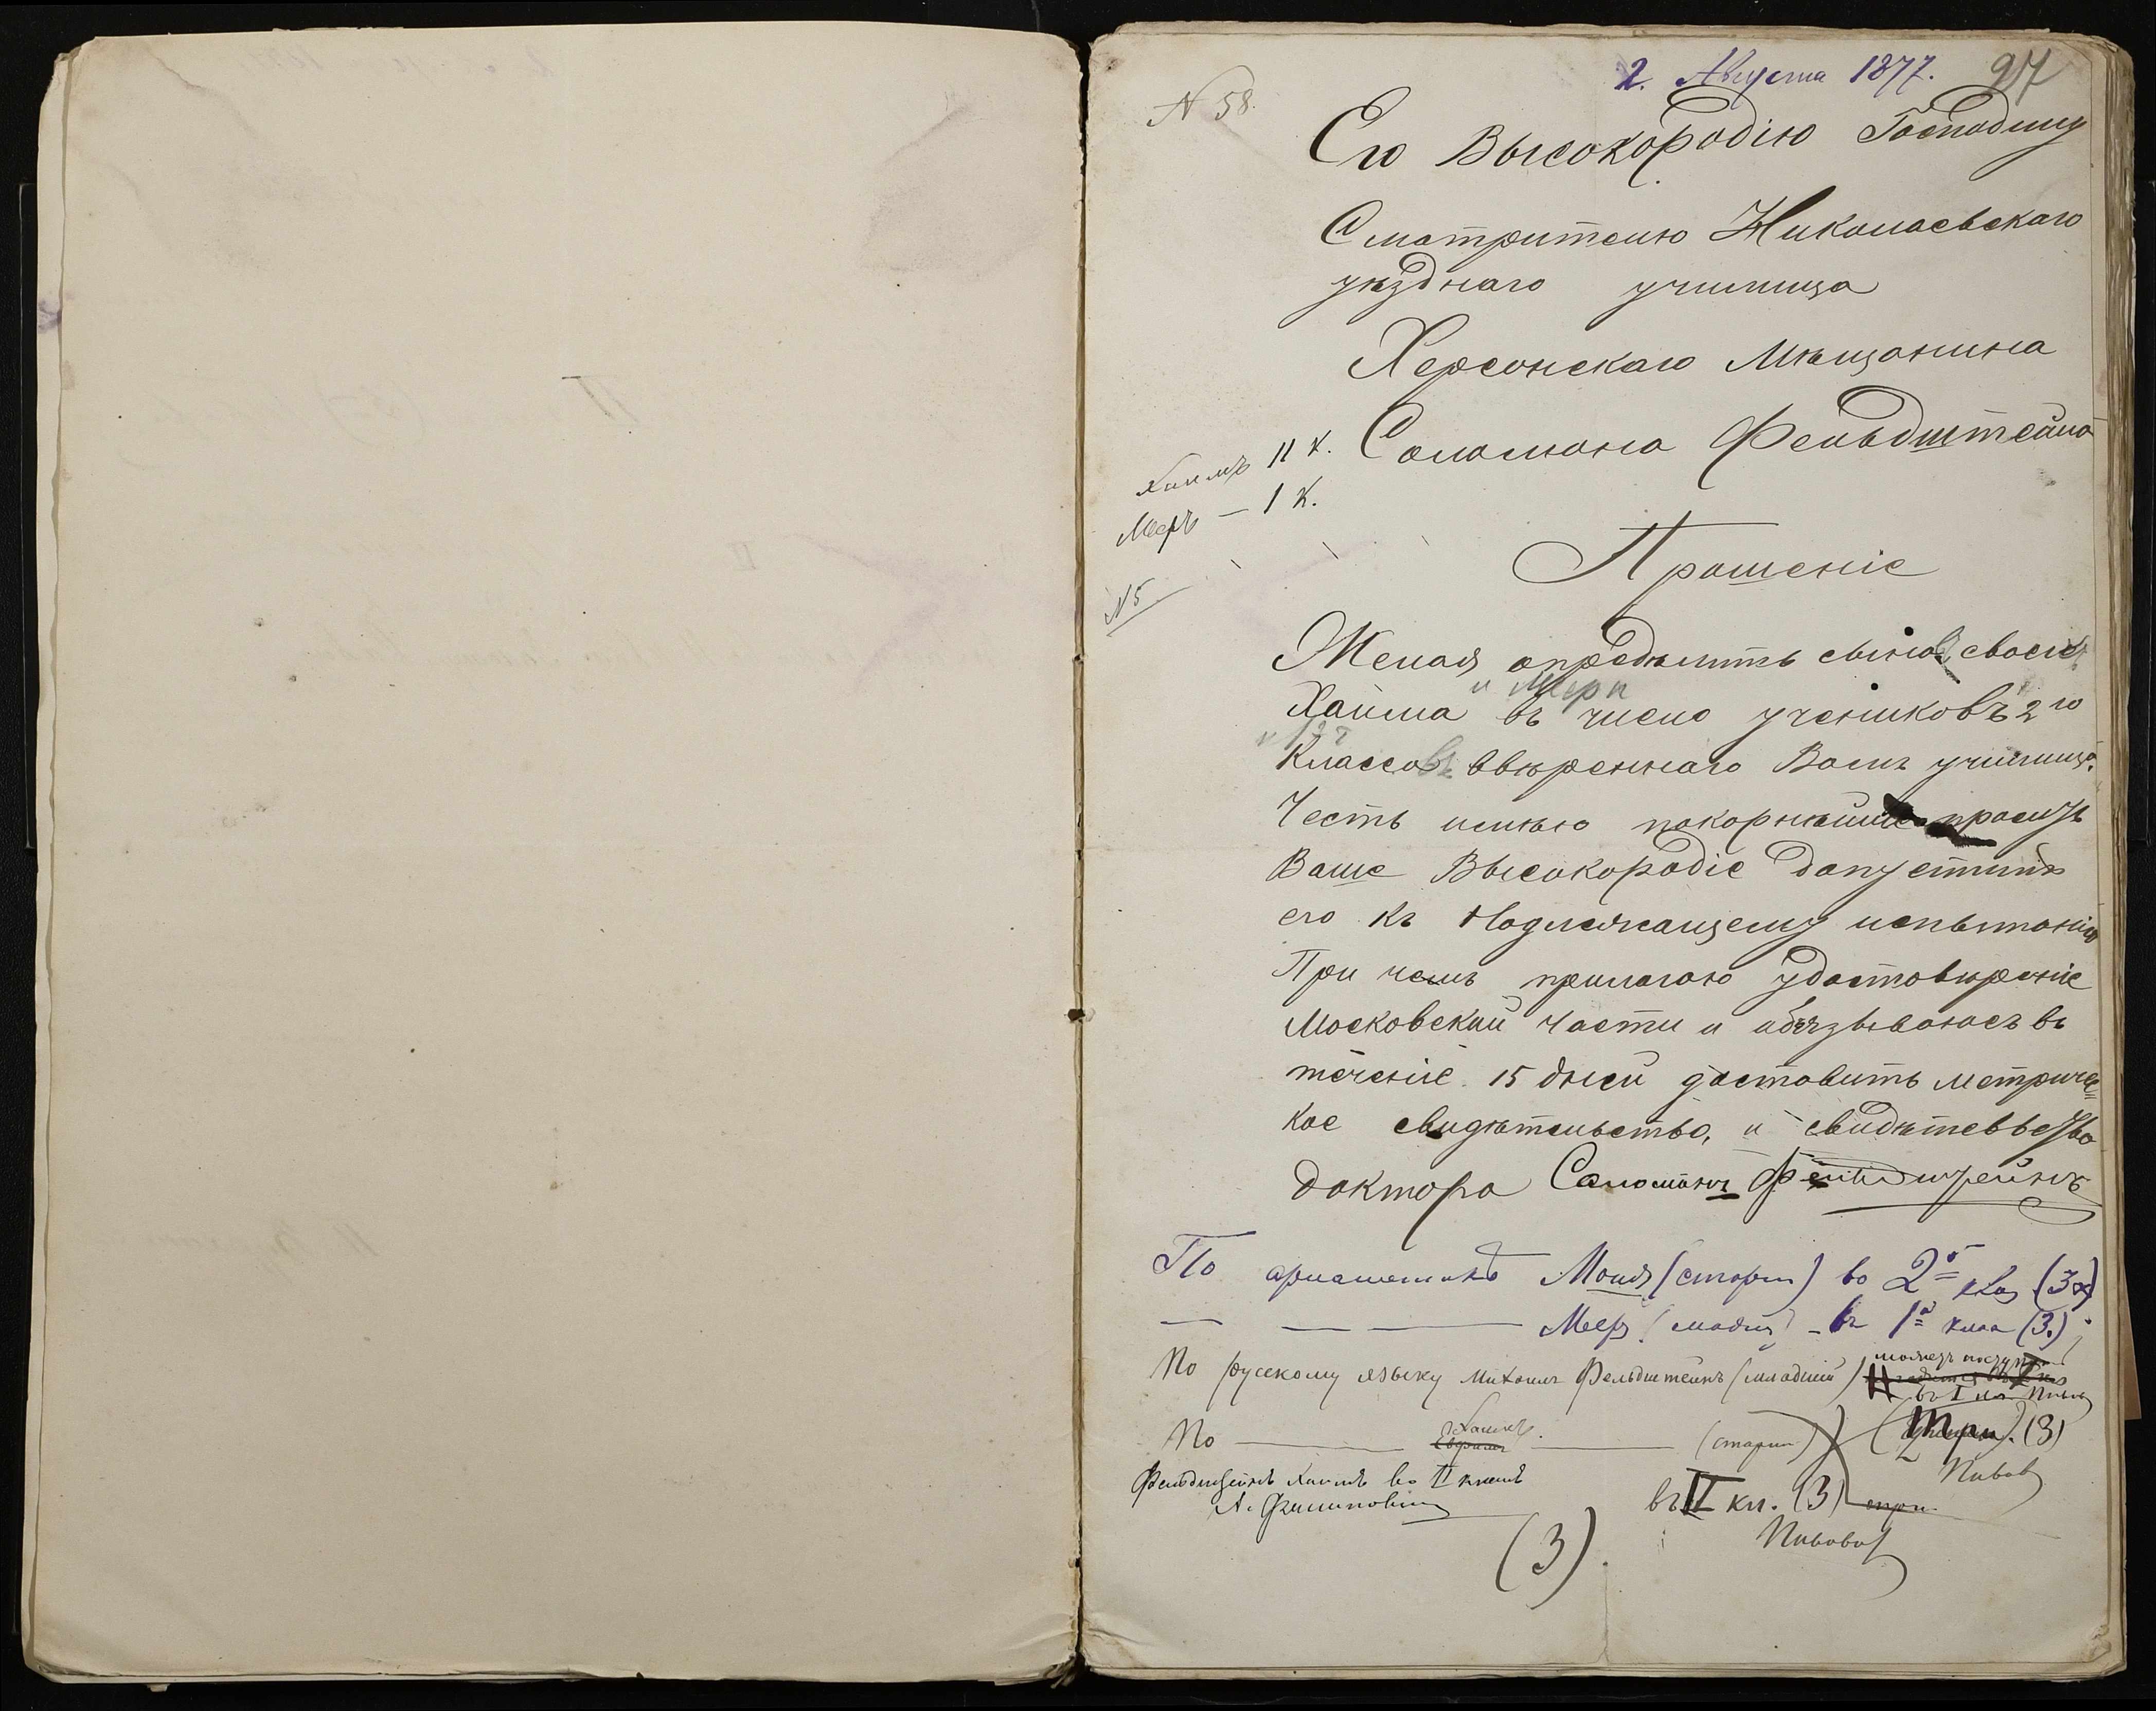 2. Августа 1877. 97
N 58.
Его Высокородію Господину
Сматрителю Николаевскаго
уѣзднаго училища
Херсонскаго Мѣщанина
Саламона Фельдштейна
Хаимъ II к.
Мееръ — I К.
N 5
Прошеніе
Желая опредѣлить сыновъ своихъ
и Меера
Хаима въ число учениковъ 2го
и 1го
классовъ ввѣреннаго Вамъ училища.
Честь имѣю покорнѣйше просить
Ваше Высокородіе допустить
его къ Надлежащему испытанію
При чемъ прилагаю удостовѣреніе
Московской части и обязываюсъ въ
теченіе 15 дней доставить метричес=
кое свидѣтельство, и свидѣтевьство
доктора Саломонъ Фельдштейнъ
По арифметикѣ (старш) во 2й кла (3)
— — — Меер (младш) – въ 1й клас (3.)
По русскому языку Михаилъ Фельдштейнъ (младшій) можетъ поступить
въ I кл. Пивов
По — Хаимъ — (старш) (три). (3)
Пивов
Фельдштейнъ Хаимъ во II классъ
А. Филиповичъ
въ II кл. (3)
Пивовар
(3).